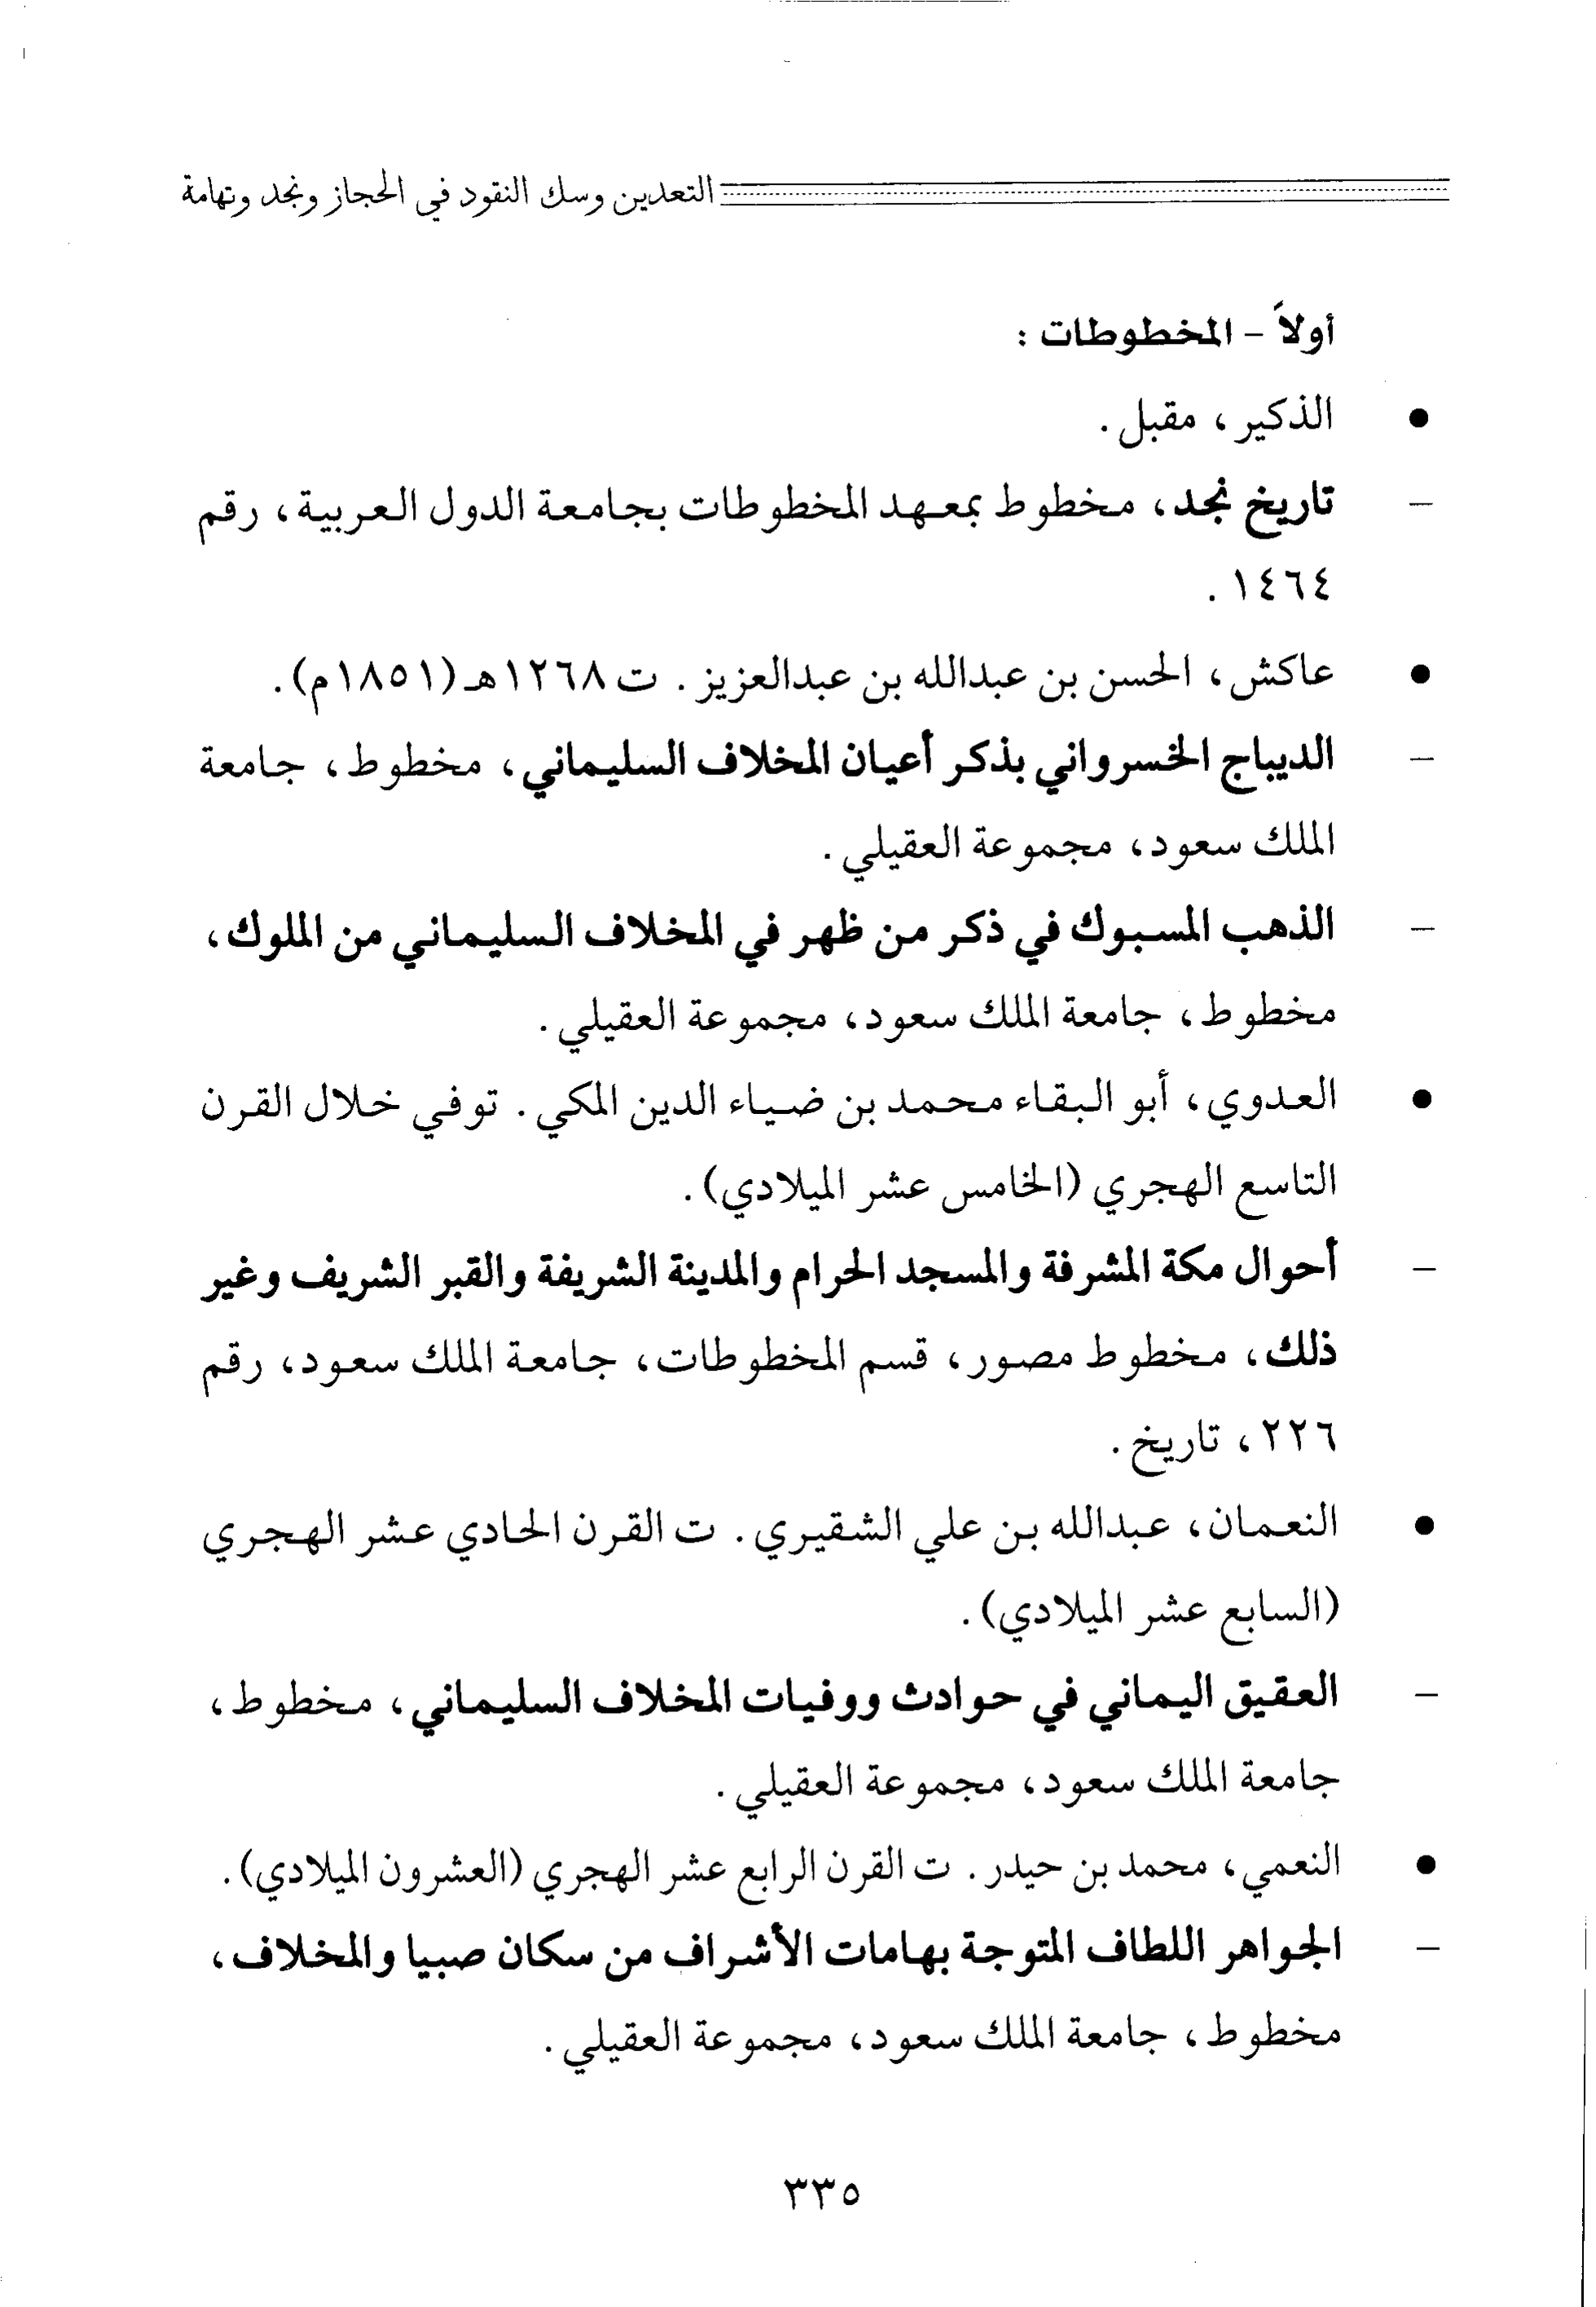 التعدين وسك النقود في الحجاز ونجد وتهامة
أولاً - المخطوطات :
● الذكير ، مقبل .
- تاريخ نجد، مخطوط بمعهد المخطوطات بجامعة الدول العربية، رقم
١٤٦٤ .
● عاكش، الحسن بن عبدالله بن عبدالعزيز . ت ١٢٦٨هـ (١٨٥١م) .
- الديباج الخسرواني بذكر أعيان المخلاف السليماني، مخطوط، جامعة
الملك سعود، مجموعة العقيلي .
- الذهب المسبوك في ذكر من ظهر في المخلاف السليماني من الملوك،
مخطوط، جامعة الملك سعود، مجموعة العقيلي .
● العدوي، أبو البقاء محمد بن ضياء الدين المكي . توفي خلال القرن
التاسع الهجري (الخامس عشر الميلادي) .
- أحوال مكة المشرفة والمسجد الحرام والمدينة الشريفة والقبر الشريف وغير
ذلك، مخطوط مصور، قسم المخطوطات، جامعة الملك سعود، رقم
٢٢٦، تاريخ .
● النعمان، عبدالله بن علي الشقيري . ت القرن الحادي عشر الهجري
(السابع عشر الميلادي) .
- العقيق اليماني في حوادث ووفيات المخلاف السليماني، مخطوط،
جامعة الملك سعود، مجموعة العقيلي .
● النعمي، محمد بن حيدر . ت القرن الرابع عشر الهجري (العشرون الميلادي) .
- الجواهر اللطاف المتوجة بهامات الأشراف من سكان صبيا والمخلاف،
مخطوط، جامعة الملك سعود، مجموعة العقيلي .
٣٣٥